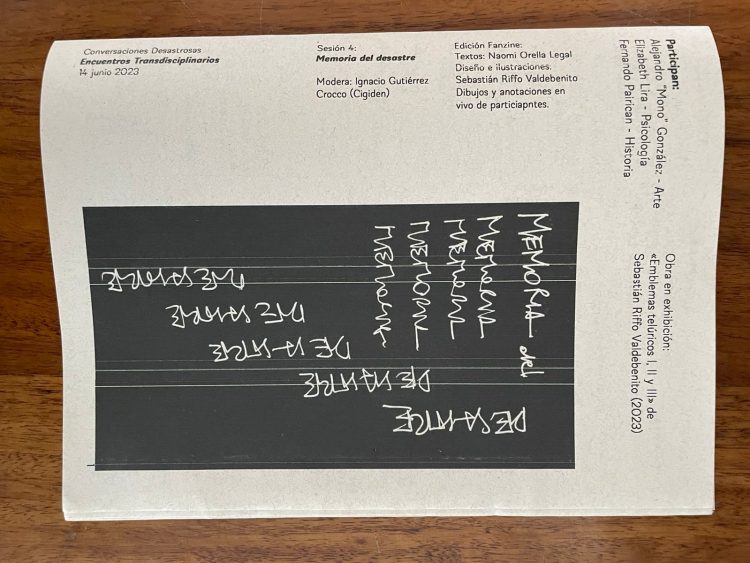 Conversaciones Desastrosas
Encuentros Transdisciplinarios
14 junio 2023
Sesión 4:
Memoria del desastre
Modera: Ignacio Gutiérrez
Crocco (Cigiden)
Edición Fanzine:
Textos: Naomi Orella Legal
Diseño e ilustraciones.
Sebastián Riffo Valdebenito
Dibujos y anotaciones en
vivo de particiapntes.
Participan:
Alejandro "Mono" González - Arte
Elizabeth Lira - Psicología
Fernando Pairican - Historia
Obra en exhibición:
«Emblemas telúricos I, II y III» de
Sebastián Riffo Valdebenito (2023)
MEMORIA del
MEMORIA
MEMORIA
MEMORIA
MEMORIA
DESASTRE
DESASTRE
DESASTRE
DESASTRE
DESASTRE